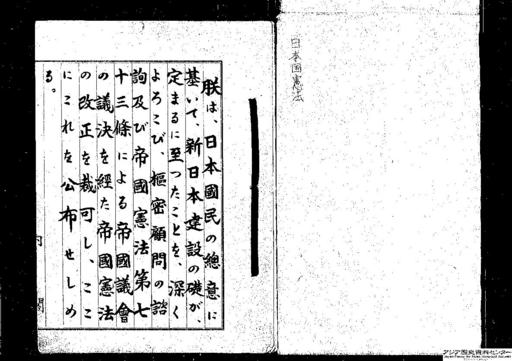 日本国憲法
朕は、日本國民の總意に
基いて、新日本建設の礎が、
定まるに至つたことを、深く
よろこび、樞密顧問の諮
詢及び帝國憲法第七
十三條による帝國議會
の議決を経た帝國憲法
の改正を裁可し、ここ
にこれを公布せしめ
る。
内閣
アジア歴史資料センター